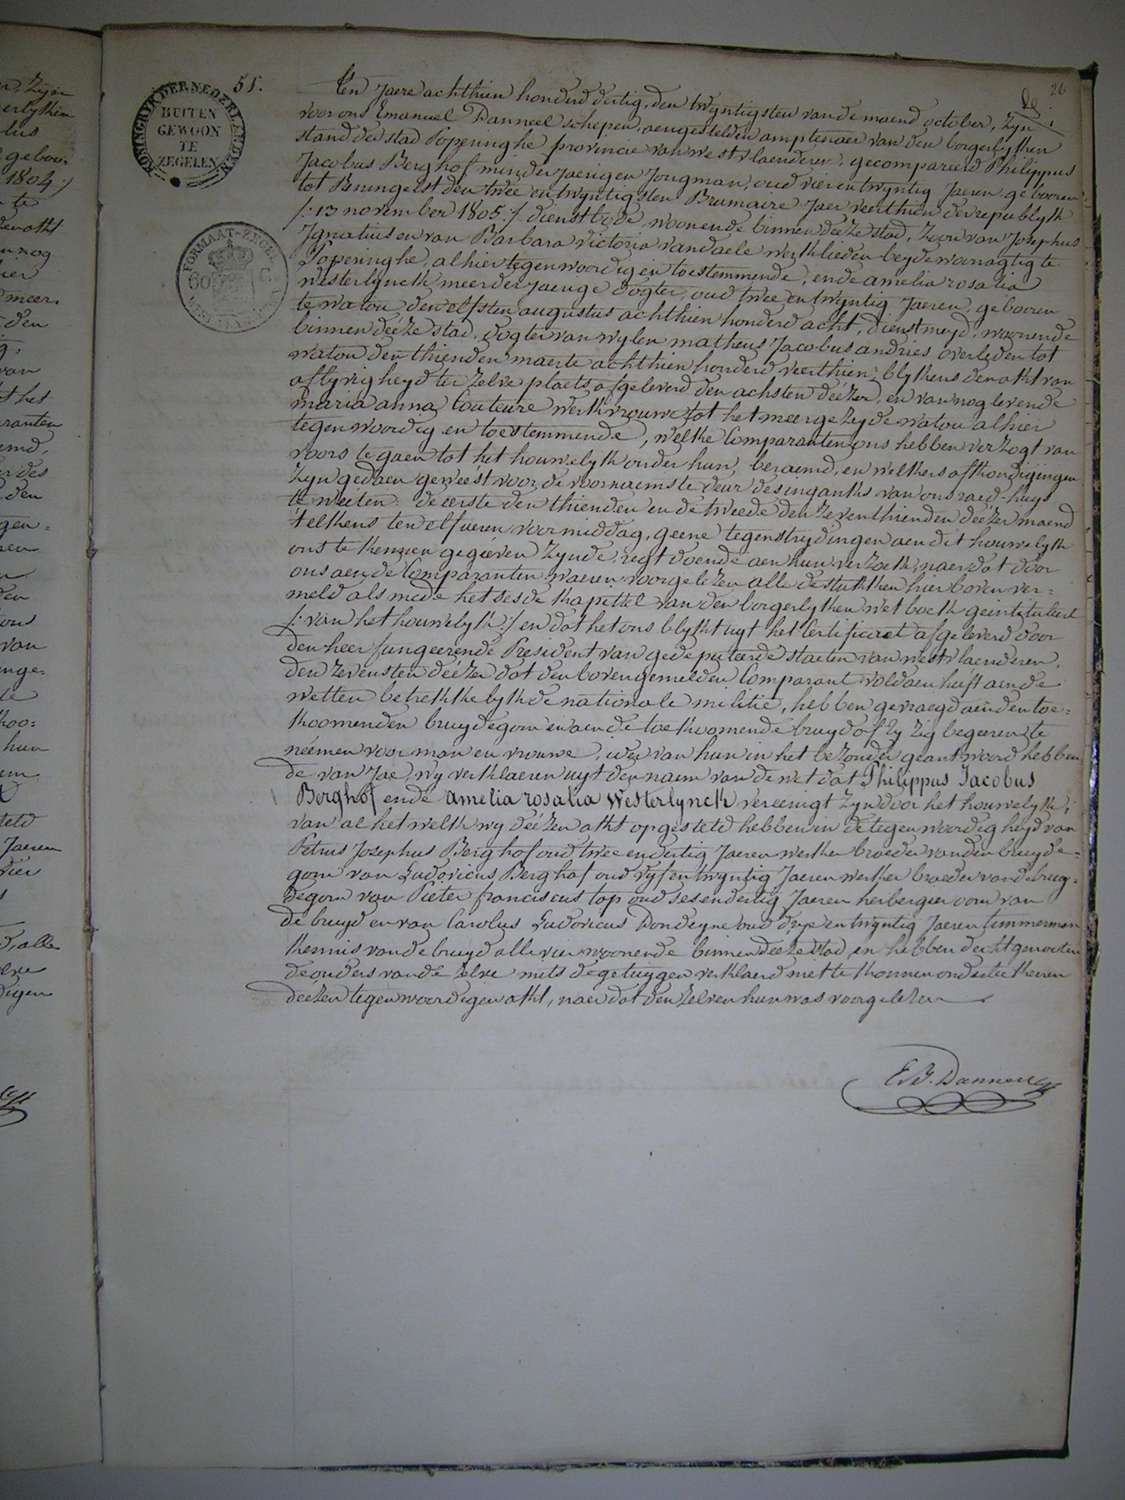 51.
26
KONINGRYK DER NEDERLANDEN
BUITEN
GEWOON
TE
ZEGELEN
FORMAAT-ZEGEL
60 C.
Ten Jaere achthien honderd dertig, den twyntigsten van de maend october, zyn
voor ons Emanuel Danneel schepen, aengestelden amptenaer van den borgerlyken
stand der stad Poperinghe provincie van westvlaenderen, gecompareerd Philippus
Jacobus Berghof minder jaerigen Jongman, oud vier en twyntig Jaeren geboren
tot Reningelst den twee en twyntigsten Brumaire Jaer veerthien der republyk
/: 13 november 1805 :/ dienstbode woonende binnen deéze stad, zoon van Josephus
Ignatius en van Barbara Victoria vandaele werklieden beyde woonagtig te
Poperinghe, alhier tegenwoordig en toestemmende, ende amelia rosalia
westerlynck meerder jaerige dogter, oud twee en twyntig Jaeren, geboren
te watou den elfsten augustus achthien honderd acht, dienstmeyd, woonende
binnen deéze stad, dogter van wylen matheus Jacobus andries overleden tot
watou den thienden maerte achthien honderd veerthien, blykens den akt van
aflyvigheyd ter zelve plaets afgeleverd den achsten deézer, en van nog levende
maria anna Couteure werkvrouwe tot het meergezeyde watou alhier
tegenwoordig en toestemmende, welke Comparanten ons hebben verzogt van
voors te gaen tot het houwelyk onder hun, beraemd, en welkers afkondigingen
zyn gedaen geweést voor de voornaemste deur des inganks van ons raed-huys
te weéten: de eerste den thienden en de tweede den zeventhienden deézer maend
telkens ten elf ueren voormiddag, geene tegenstrydingen aen dit houwelyk
ons te kennen gegeéven zynde, regt doende aen hun verzoek, naer dat door
ons aen de Comparanten waeren voorgelezen alle de stukken hier boven ver=
meld als mede het sesde kapittel van den borgerlyken wetboek geintituleerd
/: van het houwelyk :/ en dat het ons blykt uyt het Certificaet afgeleverd door
den heer fungeerende President van gedeputeerde staeten van westvlaenderen,
den zevensten deézer dat den bovengemelden Comparant voldaen heeft aen de
wetten betrekkelyk de nationale militie, hebben gevraegd aen den toe=
koomenden bruydegom en aen de toekoomende bruyd of zy zig begeeren te
neémen voor man en vrouwe, elk van hun in het bezonder geantwoord hebben
de van Jae, wy verklaeren uyt den naem van de wet dat Philippus Jacobus
Berghof ende amelia rosalia Westerlynck vereenigt zyn door het houwelyk;
van al het welk wy deézen akt opgesteld hebben in de tegenwoordigheyd van
Petrus Josephus Berghof oud twee en dertig Jaeren werker broeder van den bruyde=
gom van Ludovicus Berghof oud vyf en twyntig Jaeren werker broeder van de bruy=
degom van Pieter franciscus top oud ses en dertig Jaeren herbergier oom van
de bruyd en van Carolus Ludovicus Dondeyne oud drye en twyntig Jaeren timmerman
kennis van de bruyd alle vier woonende binnen deéze stad, en hebben de echtgenooten
de ouders van de zelve mits de getuygen verklaerd met te konnen onderteekenen
deézen tegenwoordigen akt, naer dat den zelven hun was voorgelezen
E.B. Danneel